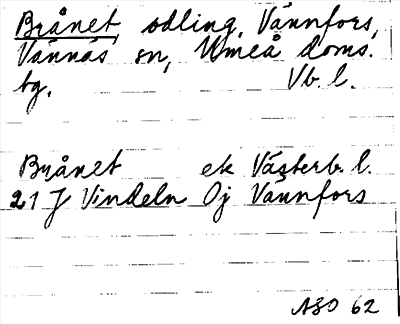 Brånet, odling, Vännfors,
Vännäs sn, Umeå doms.
bg. Vb. l.
Brånet ek Västerb. l.
21 J Vindeln Oj Vännfors
ASO 62